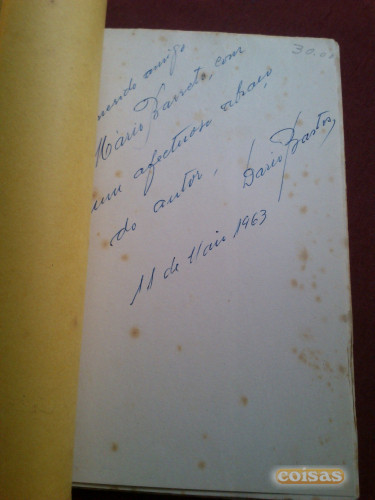 30.00
amigo
Mário Barreto, com
um afectuoso abraço
do autor,
Dario Bastos
11 de Maio 1963
coisas